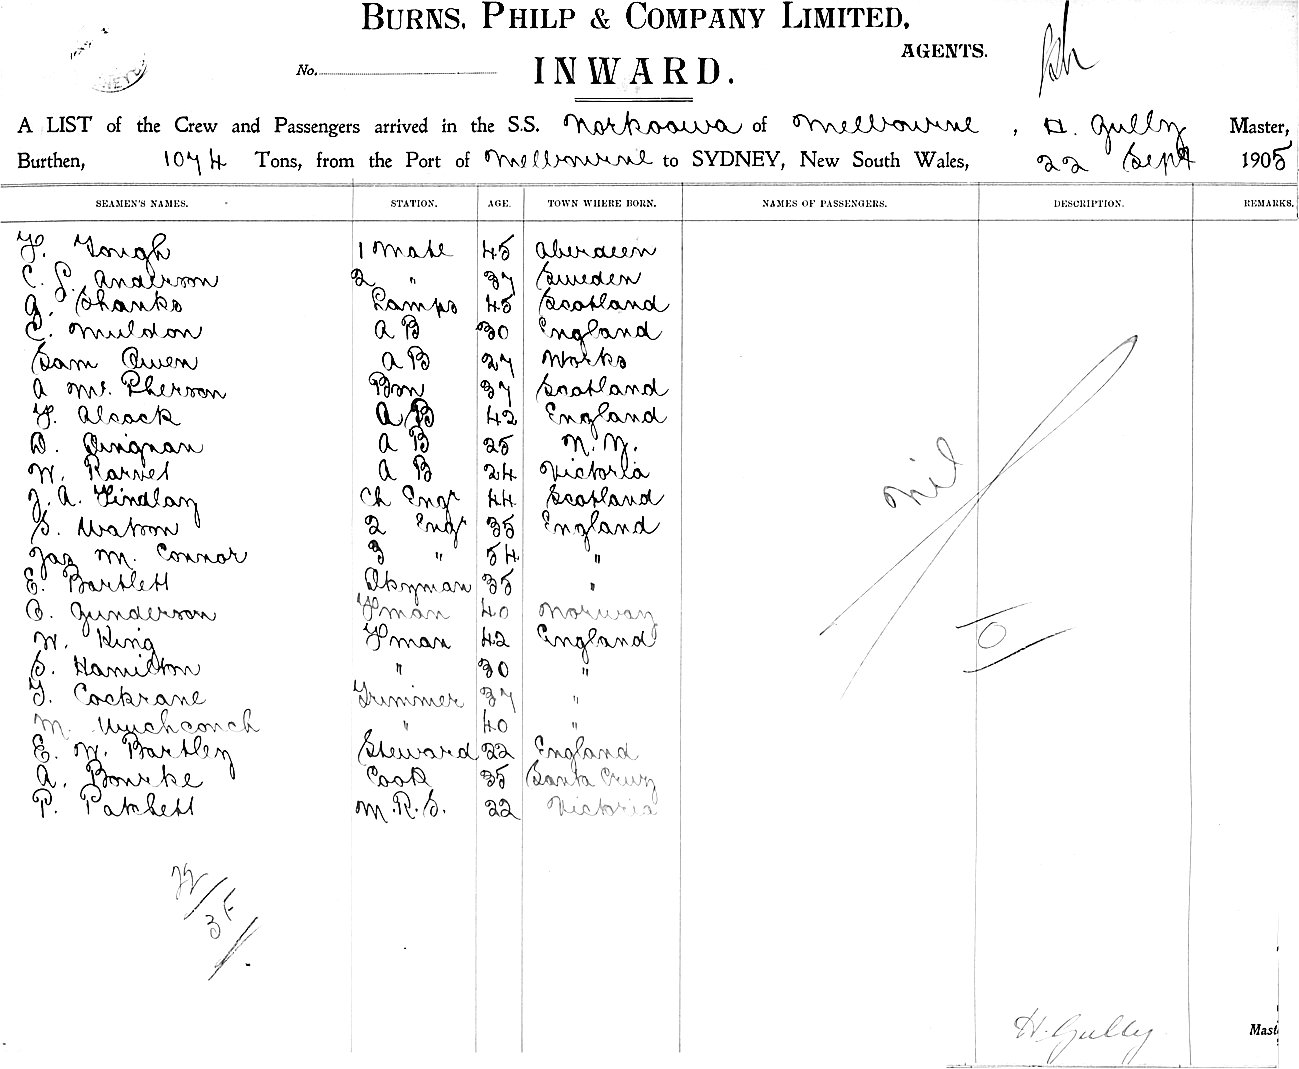 BURNS, PHILP & COMPANY LIMITED,
AGENTS.
No.
INWARD.
A LIST of the Crew and Passengers arrived in the S.S. Norkoowa of Melbourne, H. Gully Master,
Burthen, 1074 Tons, from the Port of Melbourne to SYDNEY, New South Wales, 22 Sept 1905
SEAMEN'S NAMES. STATION. AGE. TOWN WHERE BORN. NAMES OF PASSENGERS. DESCRIPTION. REMARKS.
F. Gough 1 Mate 45 Aberdeen
C. G. Anderson 2 " 37 Sweden
G. Shanks Lamps 45 Scotland
C. Muldon AB 30 England
Sam Owen AB 27 Works
A Mc. Pherson Bsn 37 Scotland
F. Alcock AB 42 England
D. Duignan AB 25 N. Z.
W. Barnet AB 24 Victoria
J. A. Findlay Ch Engr 44 Scotland
S. Watson 2 Engr 35 England
Jas M. Connor 3 " 54 "
E. Bartlett Dkyman 35 "
O. Gunderson Fman 40 Norway
W. King Fman 42 England
S. Hamilton " 30 "
T. Cockrane Trimmer 37 "
M. " 40 "
E. W. Bartley Steward 22 England
A. Bourke Cook 35 Santa Cruz
P. Patchett M.R.S. 22 Victoria
nil
22/3F
H. Gully
Mast